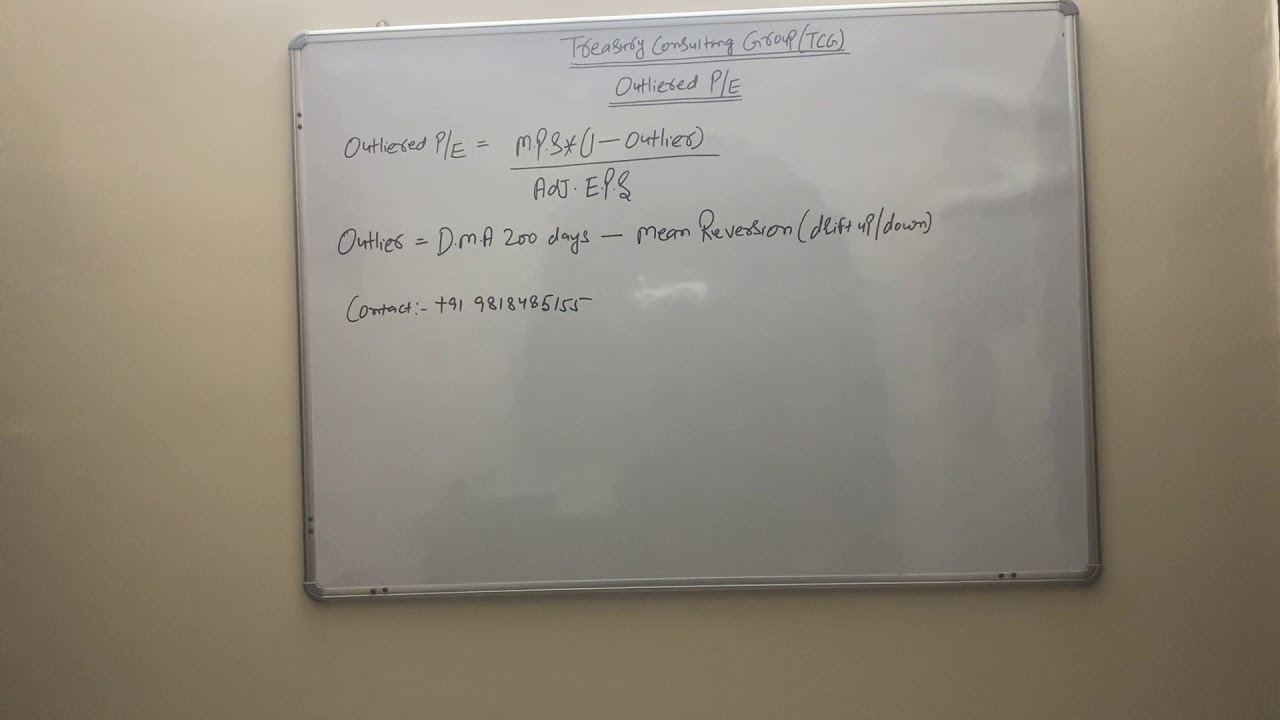 Treasury Consulting Group (TCG)
Outliered P/E
Outliered P/E = M.P.S*(1 - Outlier)
Adj. E.P.S
Outlier = D.M.A 200 days - Mean Reversion (drift up/down)
Contact:- +91 9818485155